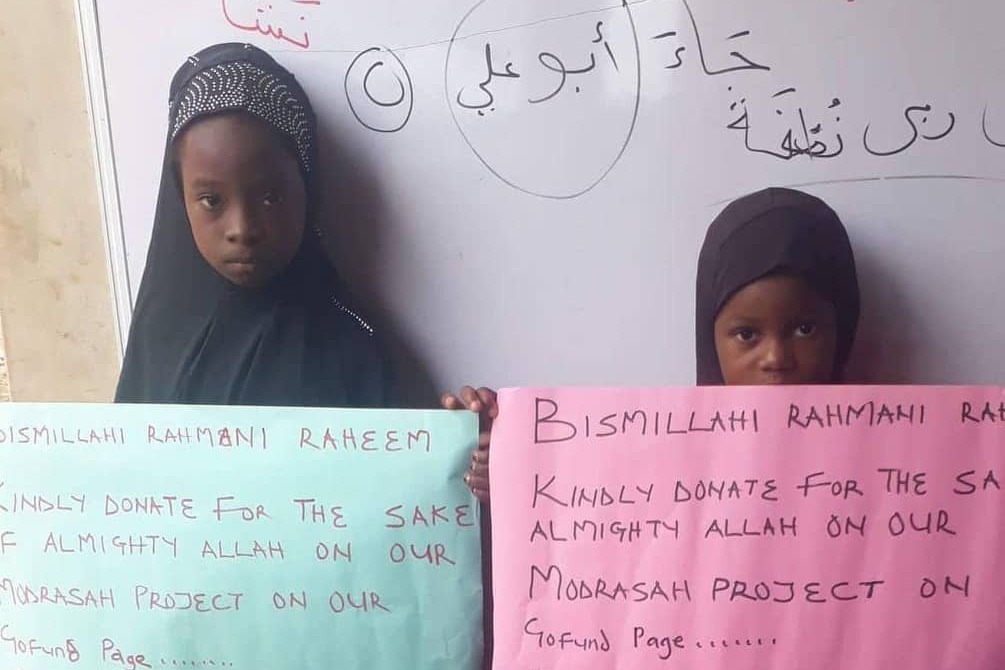 جَاءَ أبو علي
ربى نُطْفَة
BISMILLAHI RAHMANI RAHEEM
KINDLY DONATE FOR THE SAKE
F ALMIGHTY ALLAH ON OUR
MODRASAH PROJECT ON OUR
GoFund Page ........
BISMILLAHI RAHMANI RA
KINDLY DONATE FOR THE SA
ALMIGHTY ALLAH ON OUR
MODRASAH PROJECT ON
GoFund Page .......